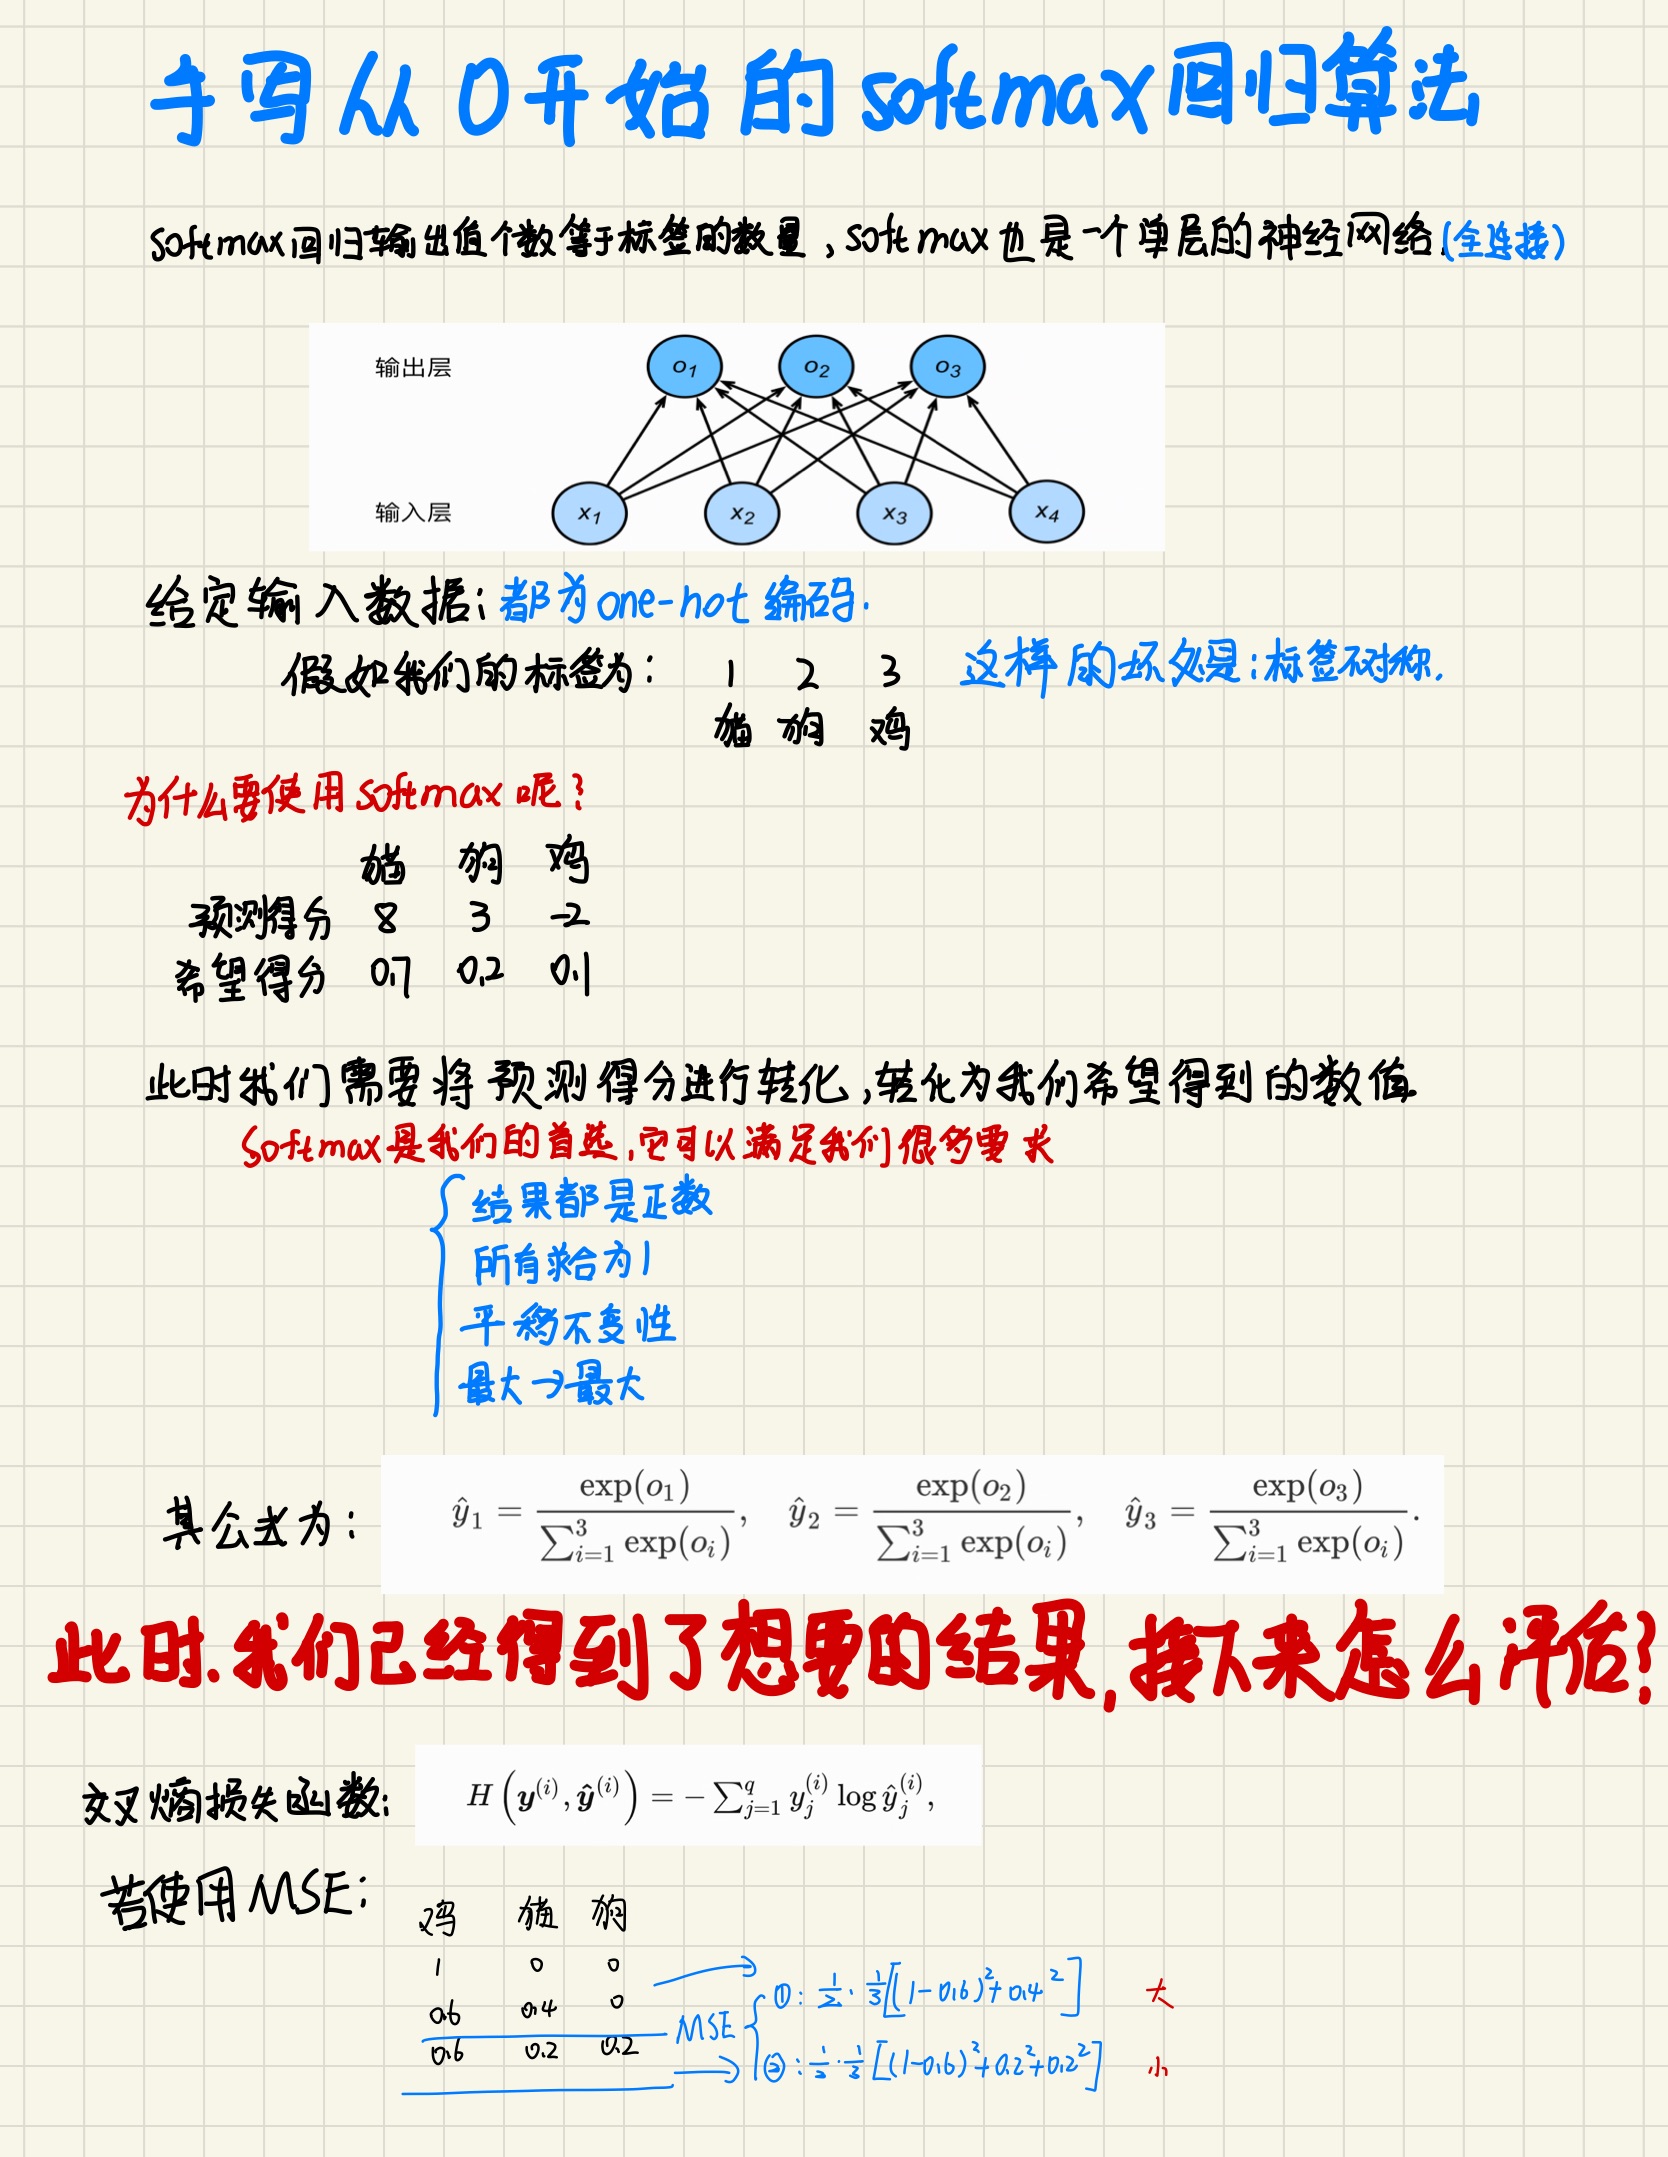 手写从0开始的softmax回归算法
softmax回归输出值个数等于标签的数量,softmax也是一个单层的神经网络.(全连接)
输出层 o₁ o₂ o₃
输入层 x₁ x₂ x₃ x₄
给定输入数据:都为one-hot编码.
假如我们的标签为: 1 2 3 这样的坏处是:标签不对称.
猫 狗 鸡
为什么要使用softmax呢?
猫 狗 鸡
预测得分 8 3 -2
希望得分 0.7 0.2 0.1
此时我们需要将预测得分进行转化,转化为我们希望得到的数值.
Softmax是我们的首选,它可以满足我们很多要求
结果都是正数
所有求合为1
平移不变性
最大→最大
其公式为: ŷ₁ = exp(o₁) / ∑³ᵢ₌₁ exp(oᵢ), ŷ₂ = exp(o₂) / ∑³ᵢ₌₁ exp(oᵢ), ŷ₃ = exp(o₃) / ∑³ᵢ₌₁ exp(oᵢ).
此时.我们已经得到了想要的结果,接下来怎么评估?
交叉熵损失函数: H(y⁽ⁱ⁾, ŷ⁽ⁱ⁾) = − ∑_{j=1}^{q} y_j⁽ⁱ⁾ log ŷ_j⁽ⁱ⁾,
若使用MSE:
鸡 猫 狗
1 0 0
①: 1/2 · 1/3[(1-0.6)²+0.4²] 大
0.6 0.4 0
MSE
0.6 0.2 0.2
②: 1/2 · 1/3[(1-0.6)²+0.2²+0.2²] 小